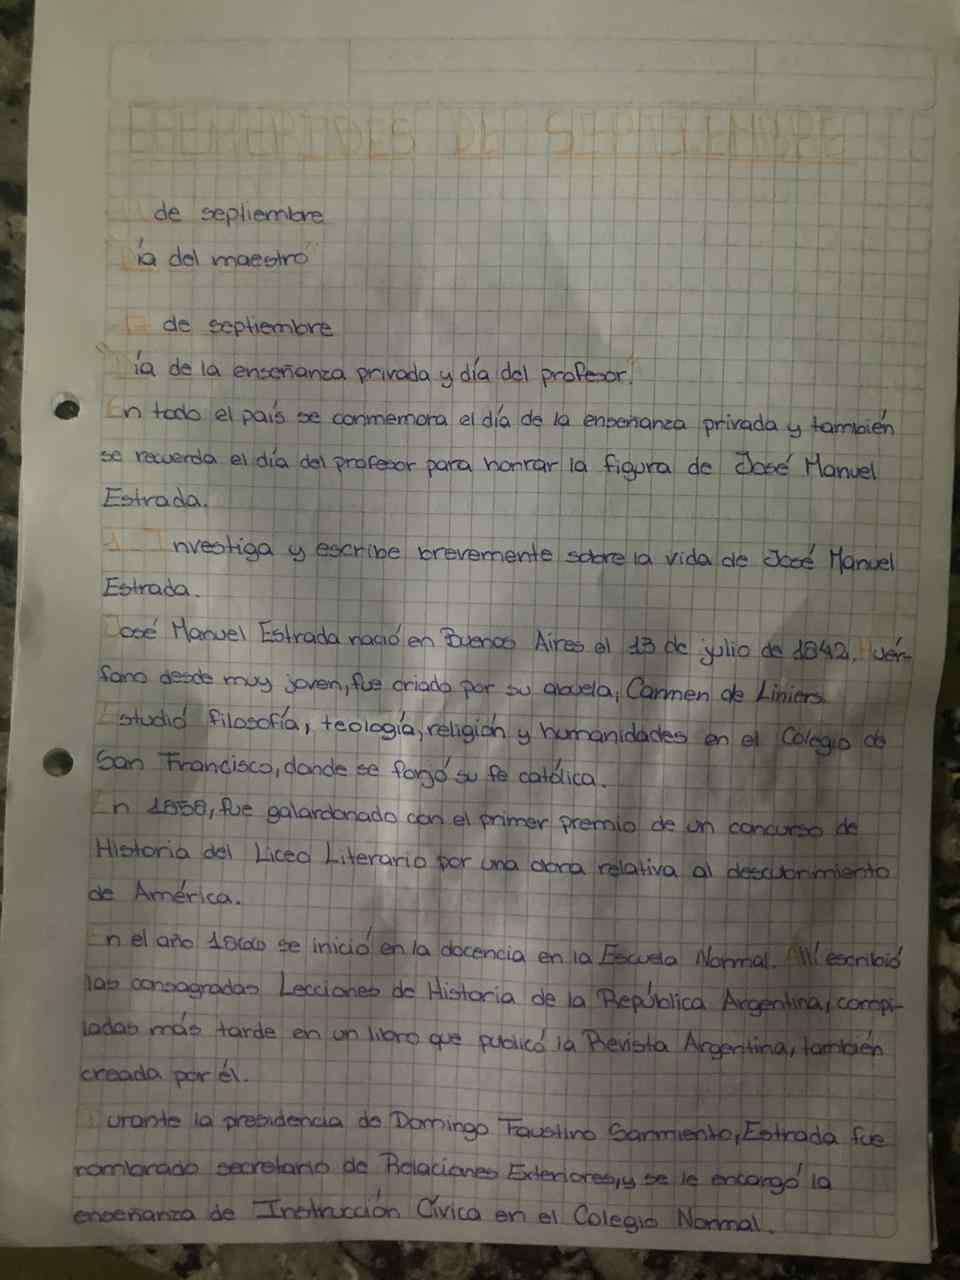 EFEMERIDES DE SEPTIEMBRE
11 de septiembre
"Día del maestro"
17 de septiembre
"Día de la enseñanza privada y día del profesor."
En todo el país se conmemora el día de la enseñanza privada y también
se recuerda el día del profesor para honrar la figura de José Manuel
Estrada.
1_ Investiga y escribe brevemente sobre la vida de José Manuel
Estrada.
José Manuel Estrada nació en Buenos Aires el 13 de julio de 1842. Huér-
fano desde muy joven, fue criado por su abuela, Carmen de Liniers.
Estudió filosofía, teología, religión y humanidades en el Colegio de
San Francisco, donde se forjó su fe católica.
En 1858, fue galardonado con el primer premio de un concurso de
Historia del Liceo Literario por una obra relativa al descubrimiento
de América.
En el año 1866 se inició en la docencia en la Escuela Normal. Allí escribió
las consagradas Lecciones de Historia de la República Argentina, compi-
ladas más tarde en un libro que publicó la Revista Argentina, también
creada por él.
Durante la presidencia de Domingo Faustino Sarmiento, Estrada fue
nombrado secretario de Relaciones Exteriores, y se le encargó la
enseñanza de Instrucción Cívica en el Colegio Normal.